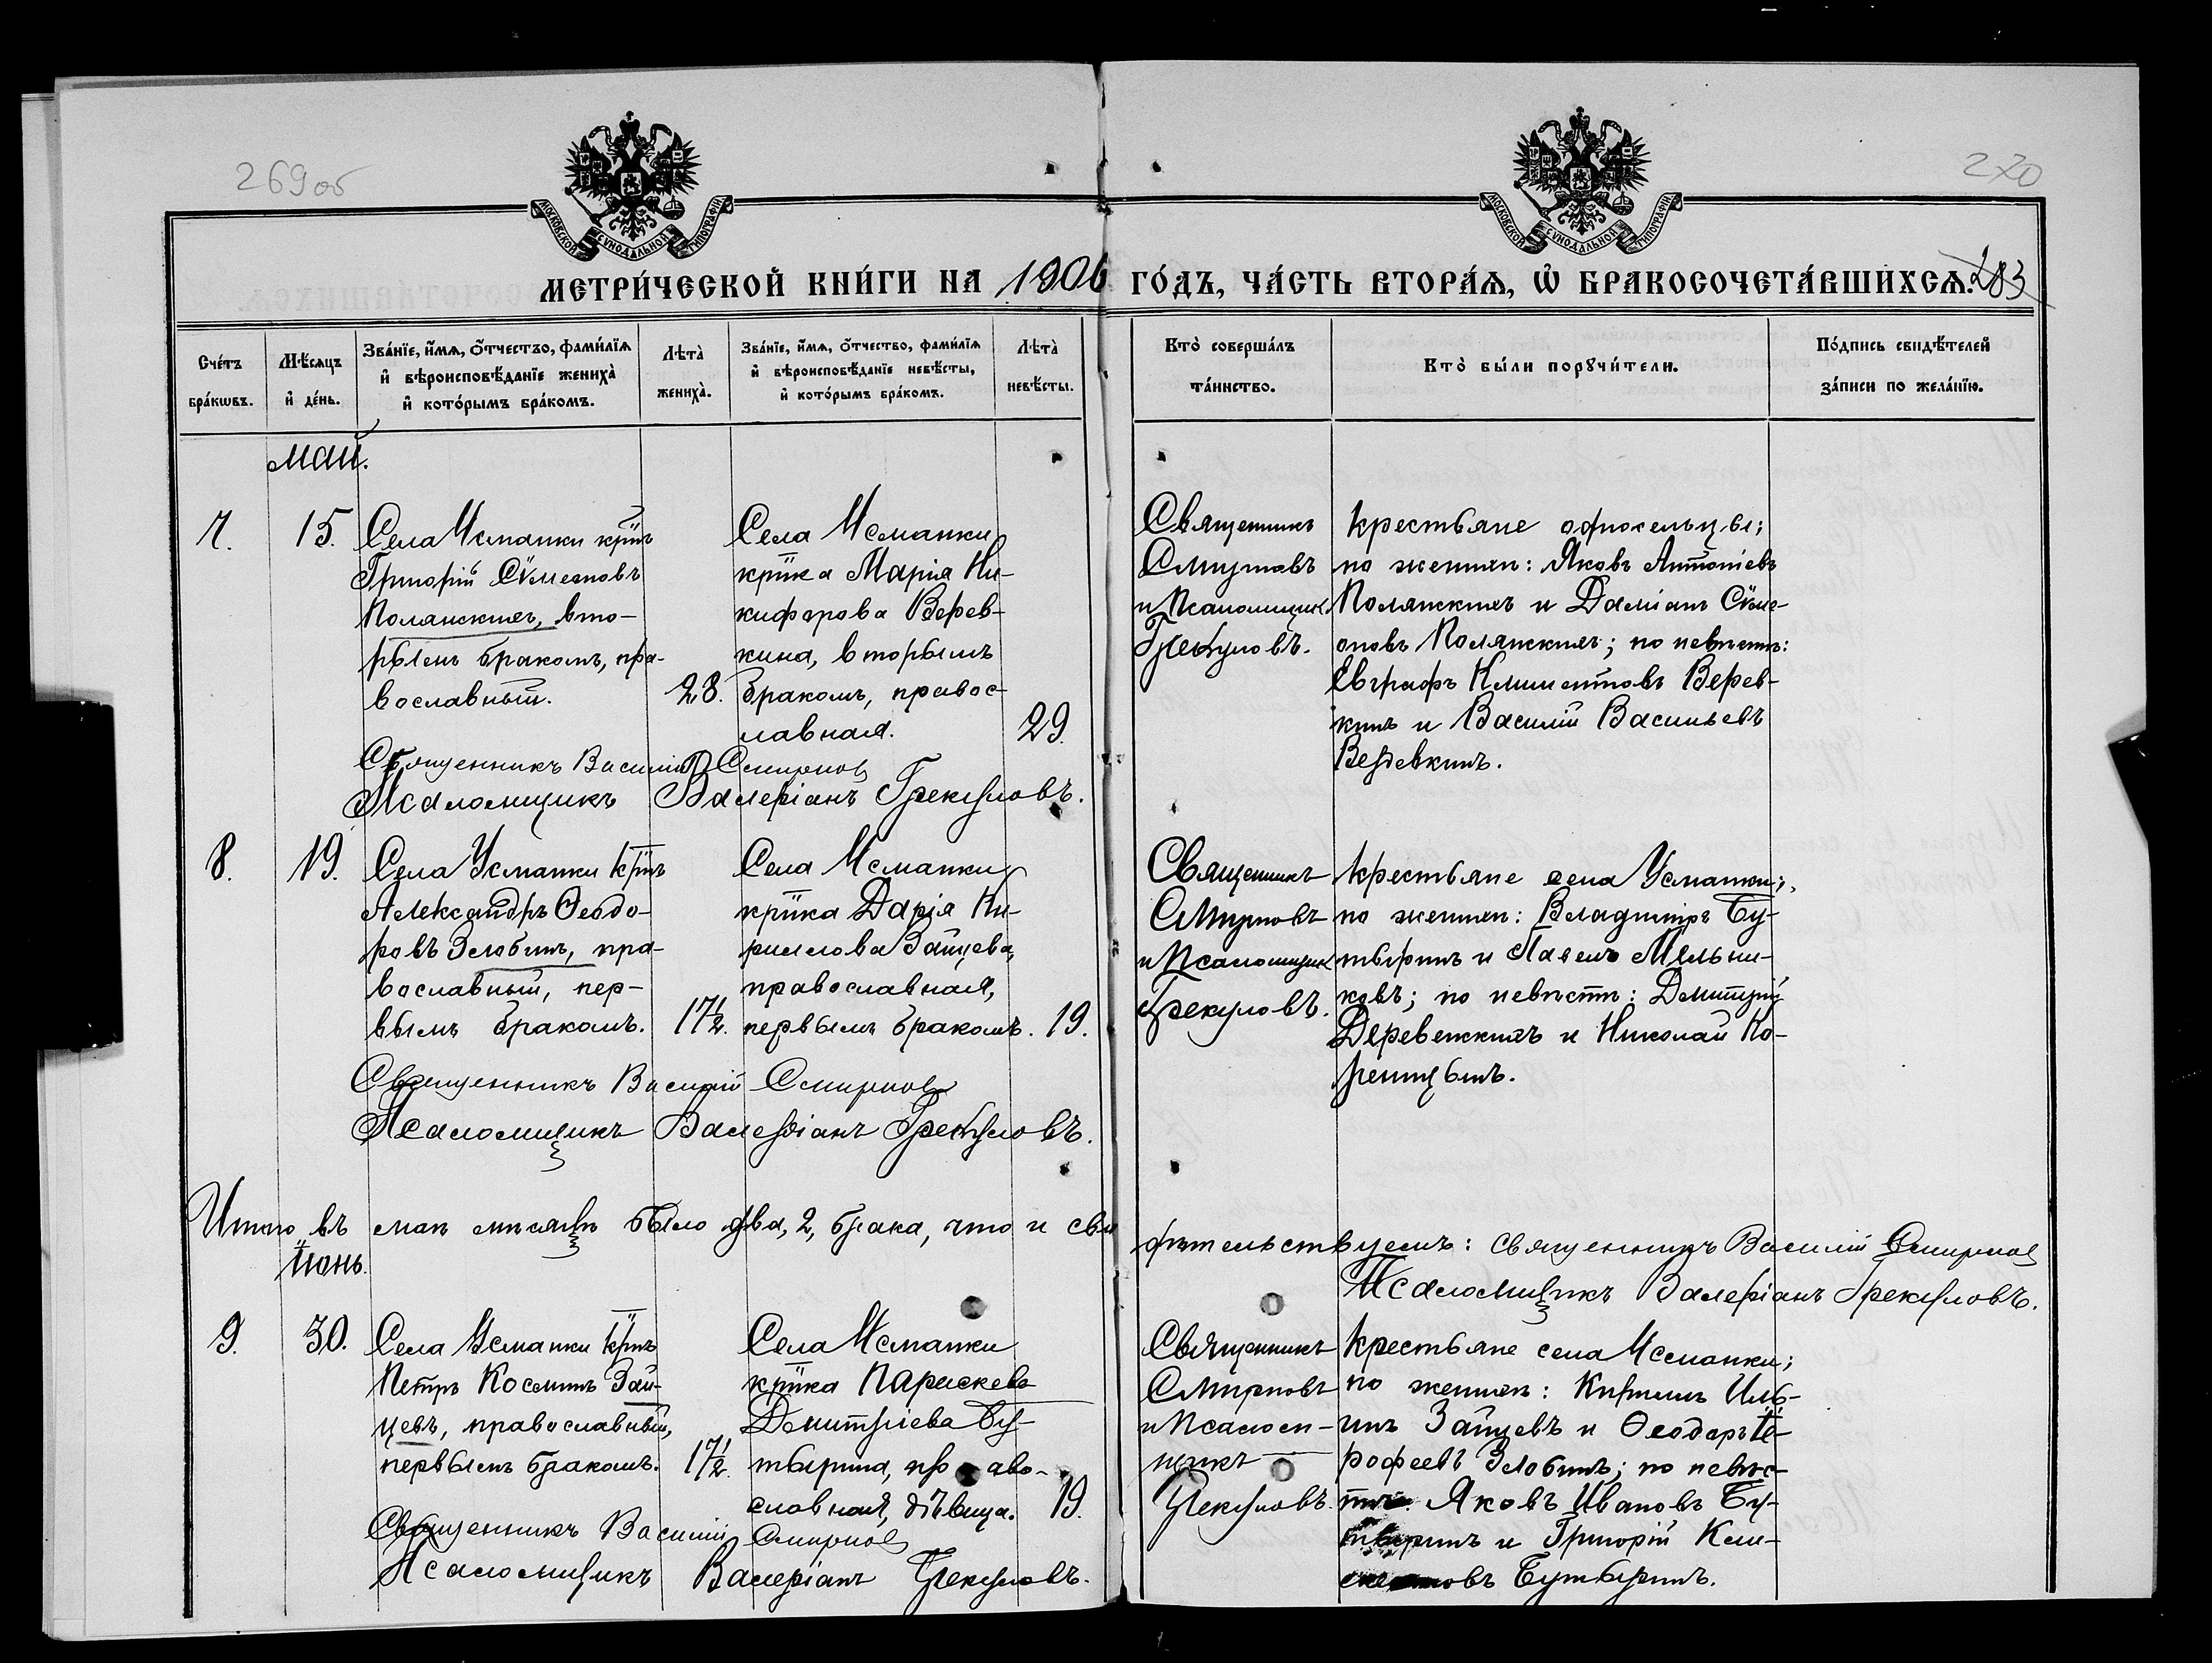 269об
270
МОСКОВСКОЙ СѴНОДАЛЬНОЙ ТИПОГРАФІИ
МОСКОВСКОЙ СѴНОДАЛЬНОЙ ТИПОГРАФІИ
МЕТРИ́ЧЕСКОЙ КНИ́ГИ НА 1906 ГО́ДЪ, ЧА́СТЬ ВТОРА́Ѧ, Ѽ БРАКОСОЧЕТА́ВШИХСѦ. 283
Сче́тъ бра́кѡвъ.
Мѣ́сяцъ и́ де́нь.
Зва́нїе, и́мя, о́тчество, фами́лїя и́ вѣроисповѣ́данїе жениха̀ и́ кото́рымъ бра́комъ.
Лѣта̀ жениха̀.
Зва́нїе, и́мя, о́тчество, фами́лїя и́ вѣроисповѣ́данїе невѣ́сты, и́ кото́рымъ бра́комъ.
Лѣта̀ невѣ́сты.
Кто̀ соверша́лъ та́инство.
Кто̀ бы́ли порꙋчи́тели.
По́дпись свидѣ́телей за́писи по жела́нїю.
май.
7.
15.
Села Усманки крїнъ
Григорій Сѵмеоновъ
Полянскихъ, вто-
рымъ бракомъ, пра-
вославный.
28.
Села Усманки
крїнка Марія Ни-
кифорова Верев-
кина, вторымъ
бракомъ, правос-
лавная.
29.
Священникъ
Смирновъ
и Псаломщик
Грекуловъ.
крестьяне односельцы;
по женихѣ: Яковъ Антоніевъ
Полянскихъ и Даміанъ Сѵме-
оновъ Полянскихъ; по невѣстѣ:
Евграфъ Климентовъ Верев-
кинъ и Василій Васильевъ
Веревкинъ.
Священникъ Василій Смирнов
Псаломщикъ Валеріанъ Грекуловъ.
8.
19.
Села Усманки крїнъ
Александръ Ѳеодо-
ровъ Злобинъ, пра-
вославный, пер-
вымъ бракомъ.
17½.
Села Усманки
крїнка Дарія Ки-
риллова Зайцева,
православная,
первымъ бракомъ.
19.
Священникъ
Смирновъ
и Псаломщик
Грекуловъ.
крестьяне села Усманки;
по женихѣ: Владиміръ Бу-
тыринъ и Павелъ Мельни-
ковъ; по невѣстѣ: Димитрій
Деревенскихъ и Николай Ко-
ренцынъ.
Священникъ Василій Смирнов
Псаломщикъ Валеріанъ Грекуловъ.
Итого въ маѣ мѣсяцѣ было два, 2, брака, что и сви
дѣтельствуемъ: священникъ Василій Смирнов
Псаломщикъ Валеріанъ Грекуловъ.
Іюнь.
9.
30.
Села Усманки крїнъ
Петръ Космин Зай-
цевъ, православный,
первымъ бракомъ.
17½.
Села Усманки
крїнка Параскева
Димитріева Бу-
тырина, право-
славная, дѣвица.
19.
Священникъ
Смирновъ
и Псалом-
щикъ
Грекуловъ.
крестьяне села Усманки;
по женихѣ: Кириллъ Иль-
инъ Зайцевъ и Ѳеодоръ Іе-
рофеевъ Злобинъ; по невѣс-
тѣ: Яковъ Ивановъ Бу-
тыринъ и Григорій Кли-
ментовъ Бутыринъ.
Священникъ Василій Смирнов
Псаломщикъ Валеріанъ Грекуловъ.